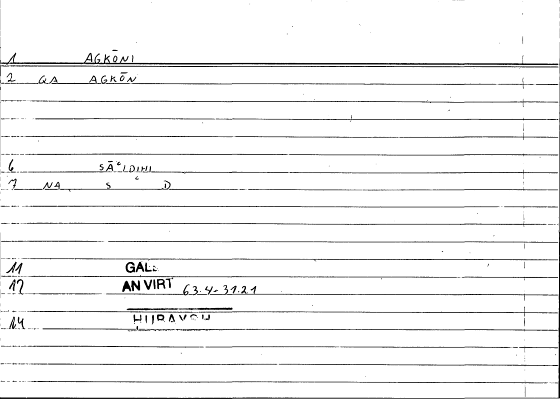 1 AGKŌNI
2 QA AGKŌN
6 SĀʿIDIHI
7 NA S ʿ D
11 GAL:
12 AN VIRT 63.4-31.21
14